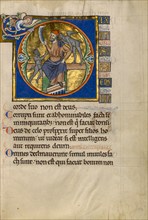 corde suo non est deus.
Corrupti sunt et abhominabiles facti st
iniquitatib; non est qui faciat bonū
Deus de celo prospexit super filios ho
minum ut uideat si est intelligens
aut requirens deum
Omnes declinauerunt simul inutiles
facti sunt non est qui faciat bonum non